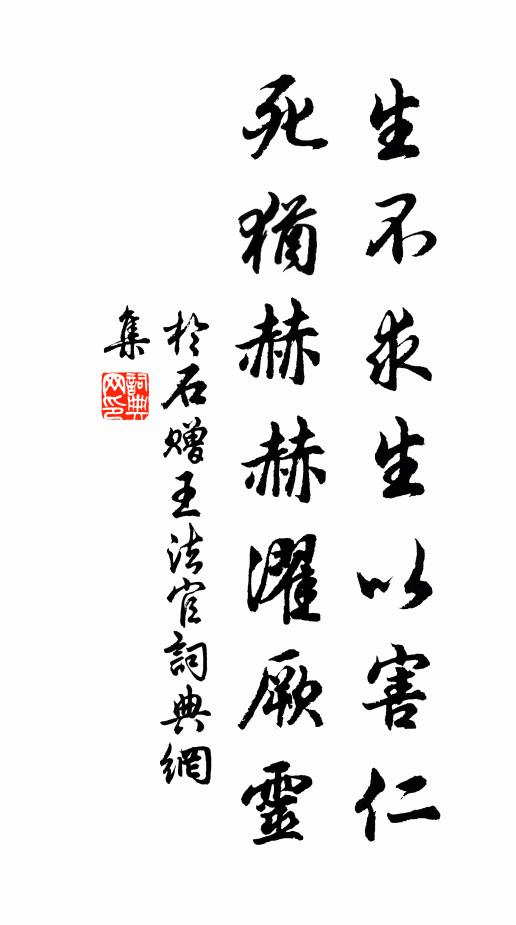 生不求生以害仁
死猶赫赫濯厥靈
於石贈王法官詞典網
集
詞典
网印